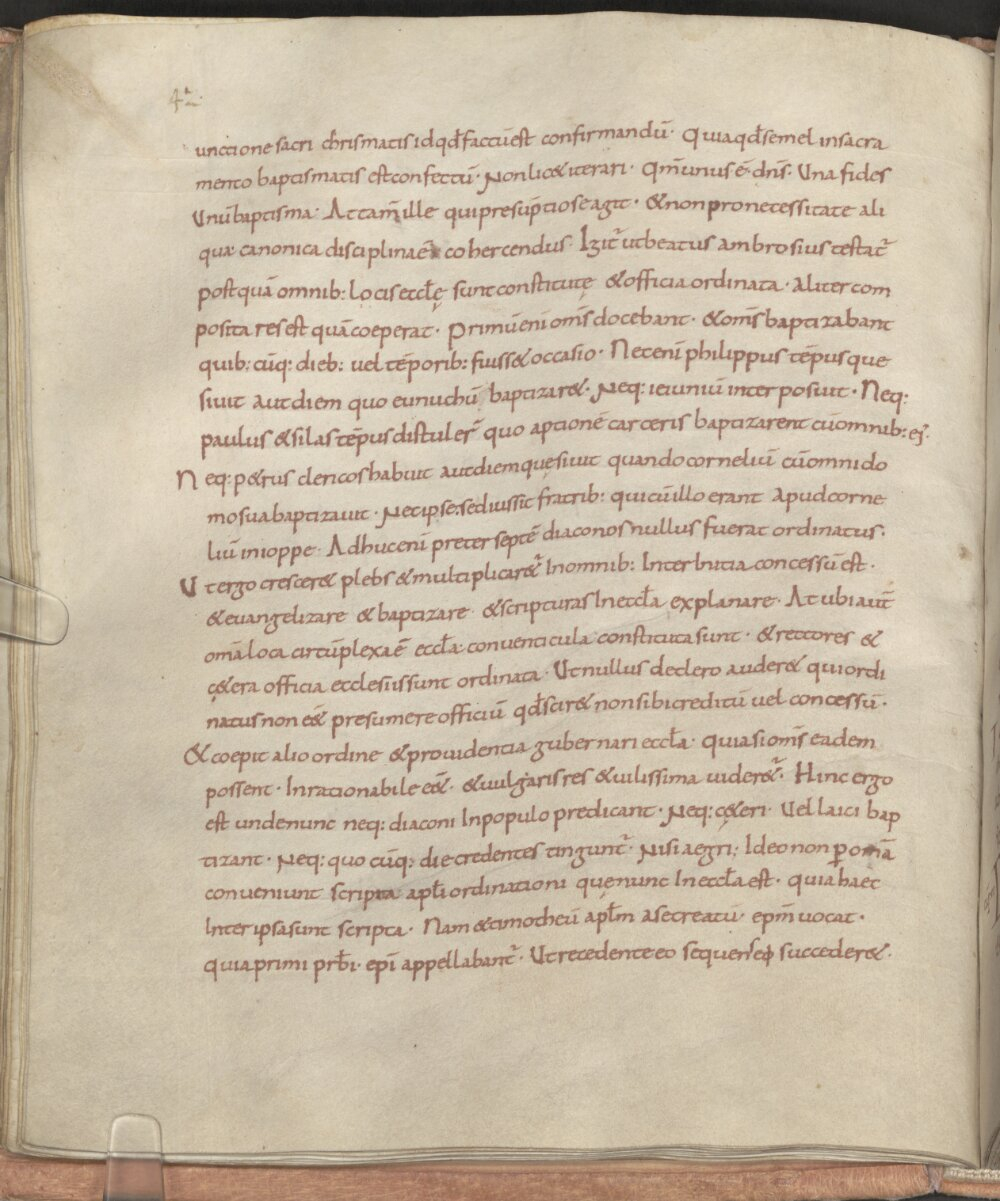 4a
unctione sacri chrismatis id qd̄ factū est confirmandū · Quia qd̄ semel in sacra
mento baptismatis est confectū · Non lic& iterari · Qm̄ unus ē dn̄s · Una fides
Unū baptisma · At tam̄ ille qui presūptiose agit · & non pro necessitate ali
qua canonica disciplina ē cohercendus · Igit̄ ut beatus ambrosius testat̄
postquā omnib: locis eccłę sunt constitutę & officia ordinata · Aliter com
posita res est quā coeperat · Primū eni om̄s docebant · & om̄s baptizabant
quib: cūq: dieb: vel tēporib: fuiss& occasio · Nec eni philippus tēpus que
siuit aut diem quo eunuchū baptizar& · Neq: ieiuniū interposuit · Neq:
paulus & silas tēpus distuler̄ quo aptionē carceris baptizarent cū omnib: ei
Neq: p&rus clericos habuit aut diem quesiuit quando corneliū cū omni do
mo sua baptizauit · Nec ipse: sed iussit fratrib: qui cū illo erant Apud corne
liū in ioppe · Adhuc eni preter septē diaconos nullus fuerat ordinatus ·
Ut ergo crescer& plebs & multiplicar&̄ In omnib: Inter Initia concessū est ·
& evangelizare & baptizare & scripturas In eccła explanare · At ubi aut̄
om̄a loca circūplexa ē eccła: conventicula constituta sunt · & rectores &
c&era officia ecclesiis sunt ordinata · Ut nullus de clero auder& qui ordi
natus non eē& presumere officiū qd̄ scir& non sibi creditū vel concessū ·
& coepit alio ordine & providentia gubernari eccła · quia si om̄s eadem
possent · Inrationabile eē& · & vulgaris res & vilissima uider&̄ · Hinc ergo
est unde nunc neq: diaconi In populo predicant · Neq: c&eri · Vel laici bap
tizant · Neq: quo cūq: die credentes tingunt̄ · Nisi aegri; Ideo non ꝑ om̄a
conveniunt scripta apłi ordinationi que nunc In eccła est · quia haec
Inter ipsa sunt scripta · Nam & timotheū apłm a se creatū · epm̄ vocat ·
quia primi prb̄i · epi appellabant̄ · Ut recedente eo sequens ei succeder& ·